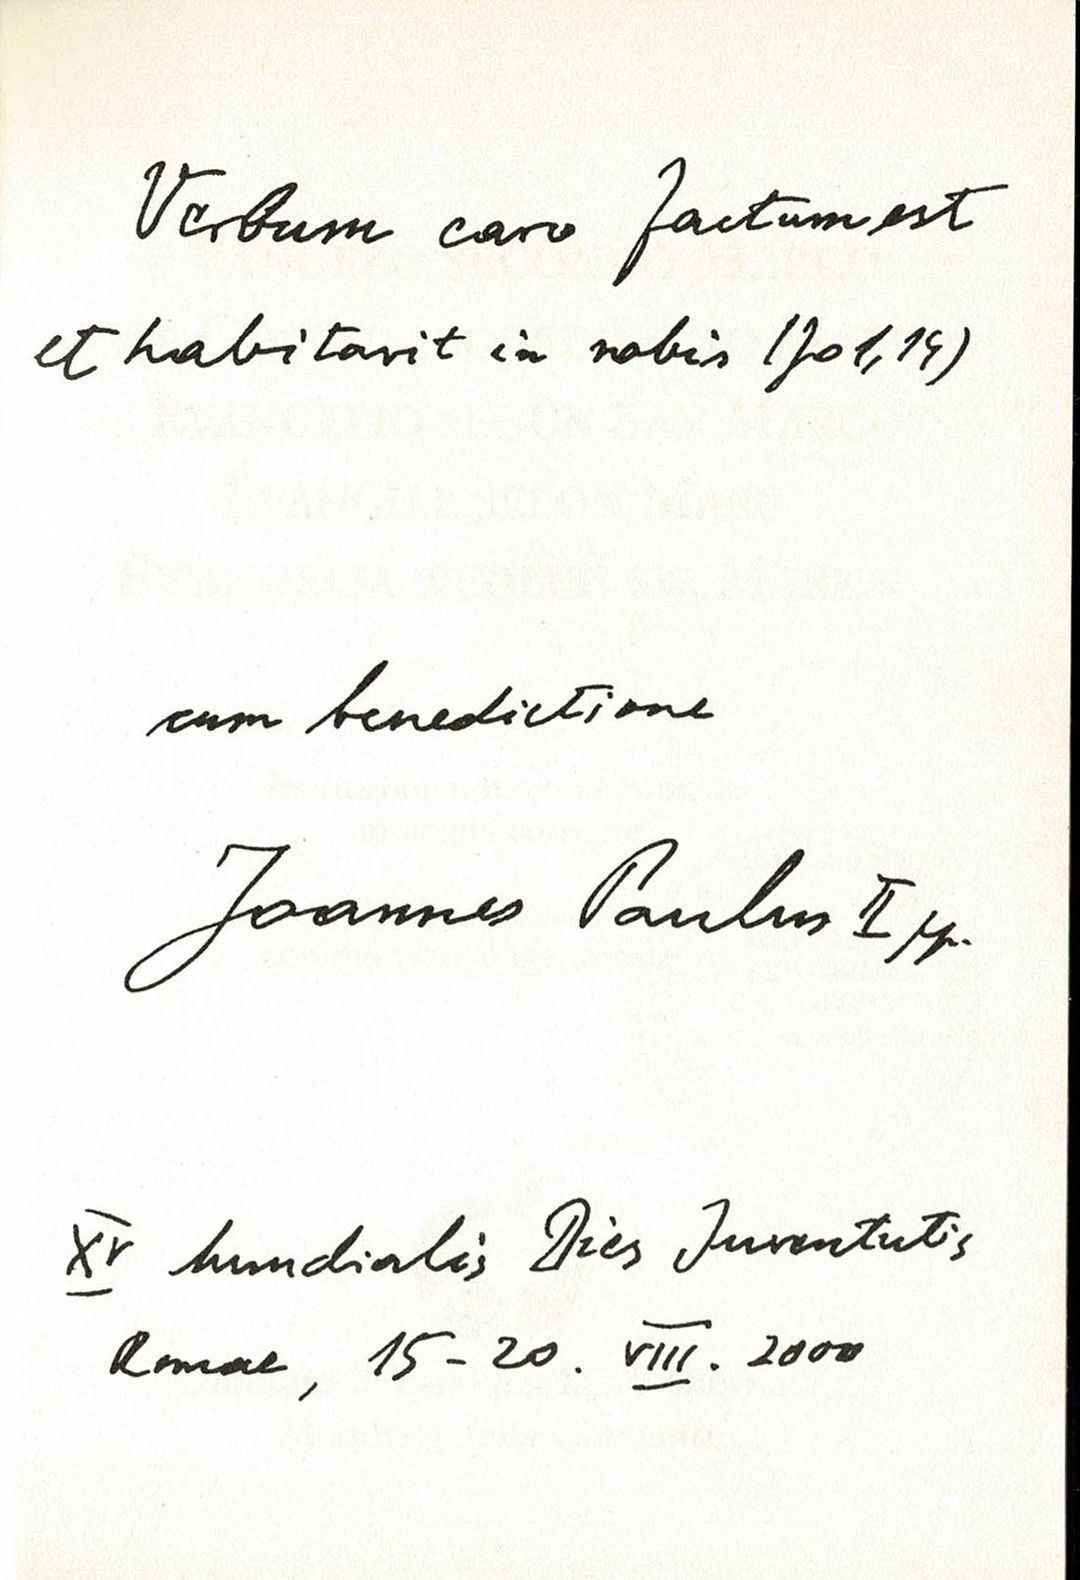 Verbum caro factum est
et habitavit in nobis (Jo 1, 14)
cum benedictione
Joannes Paulus II pp.
XV mundialis Dies Juventutis
Romae, 15-20. VIII. 2000